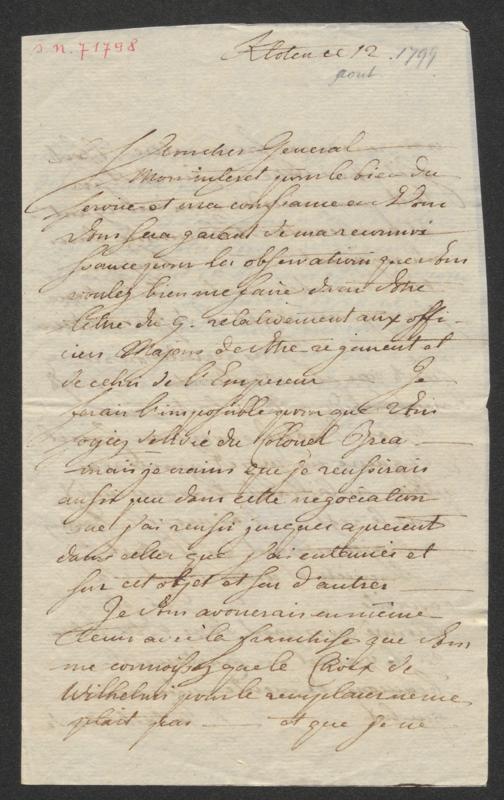 s.n. 71798
Kloten ce 12. 1799
aout
Mon cher General
Mon interet pour le bien du
service et ma confiance en Vous
Vous sera garant de ma reconnoi
ssance pour les observations que Vous
voulez bien me faire dans Votre
lettre du 9. relativement aux offi-
ciers Majors de Votre regiment et
de celui de l'Empereur Je
ferais l'impossible pour que Vous
soyez delivré du Colonel
mais je crains que je reussirais
aussi peu dans cette negociation
que j'ai reussi jusques a present
dans celles que j'ai entamées et
sur cet objet et sur d'autres
Je Vous avouerais en meme
tems avec la franchise que Vous
me connoissez que le Choix de
Wilhelmi pour le remplacer ne me
plait pas et que je ne